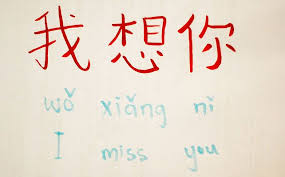 我想你
wǒ xiǎng nǐ
I miss you